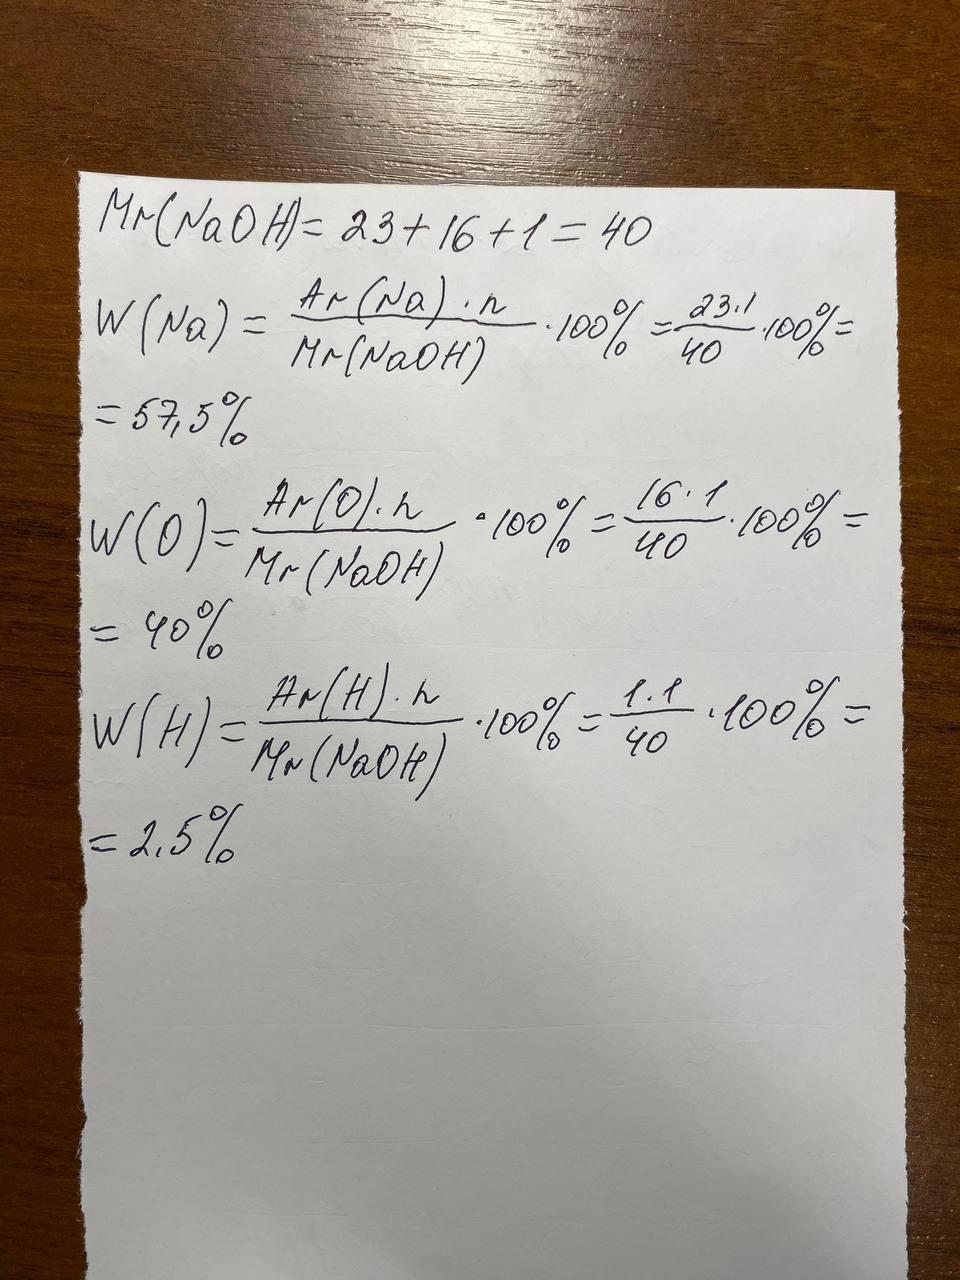 Mr(NaOH) = 23 + 16 + 1 = 40
W(Na) = Ar(Na) · n / Mr(NaOH) · 100% = 23·1 / 40 · 100% =
= 57,5%
W(O) = Ar(O) · n / Mr(NaOH) · 100% = 16·1 / 40 · 100% =
= 40%
W(H) = Ar(H) · n / Mr(NaOH) · 100% = 1·1 / 40 · 100% =
= 2,5%